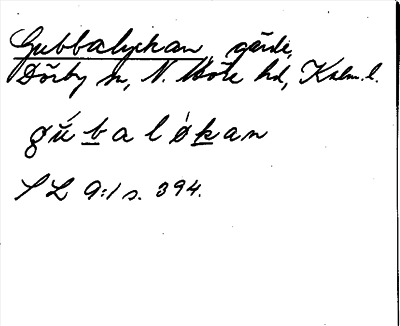 Gubbalyckan, gärde,
Dörby sn, N. Möre hd, Kalm. l.
gúbaløkan
SL 9:1 s. 394.